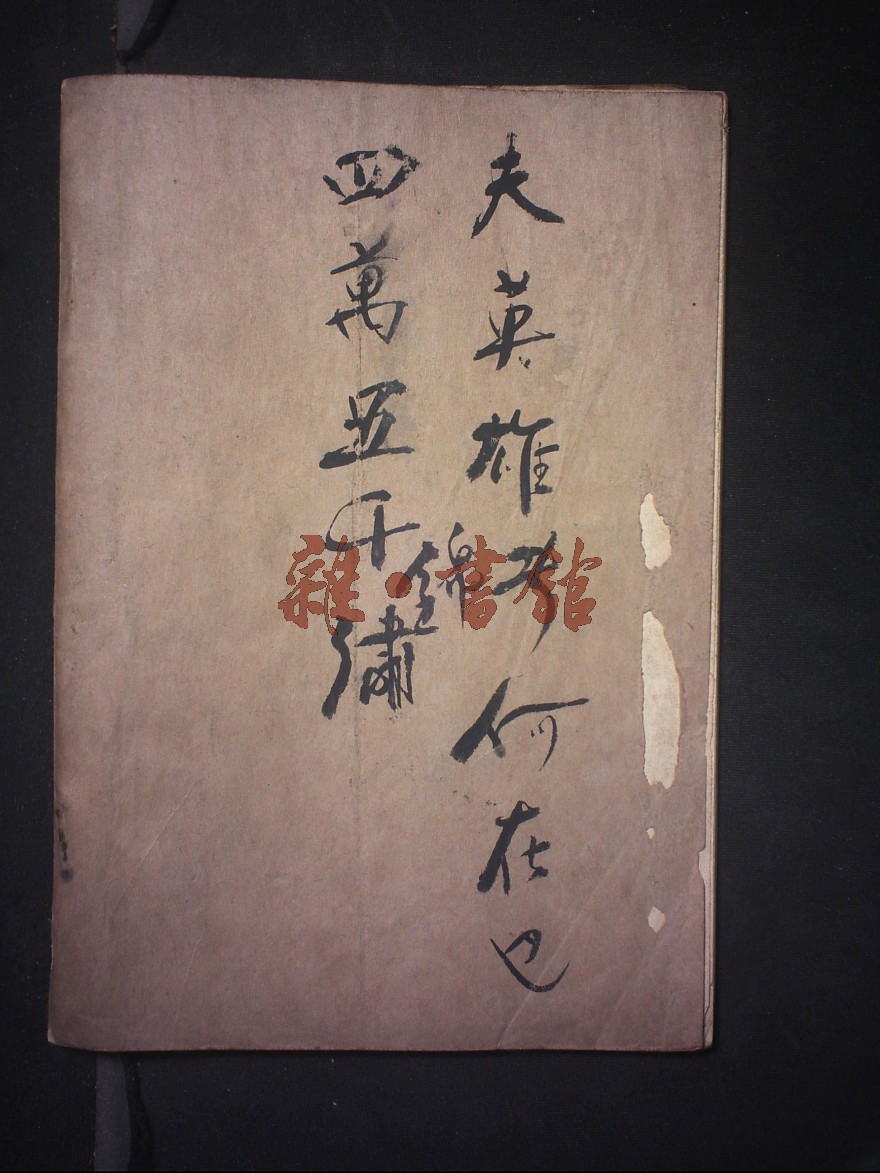 夫英雄何在也
四萬五千繡
雜·書館